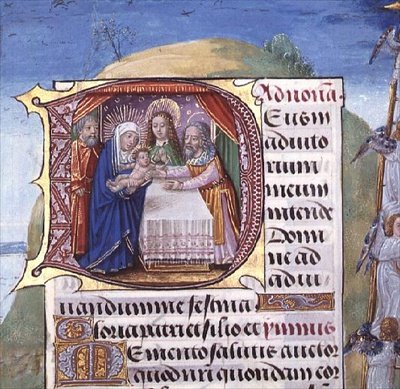 Ad nonā.
DEus in
adiuto
rium
meum
intende
Domi
ne ad
adiu
uandum me festina
Gloria patri et filio et ymnus
MEmento salutis auctor
quod nri quondam cor